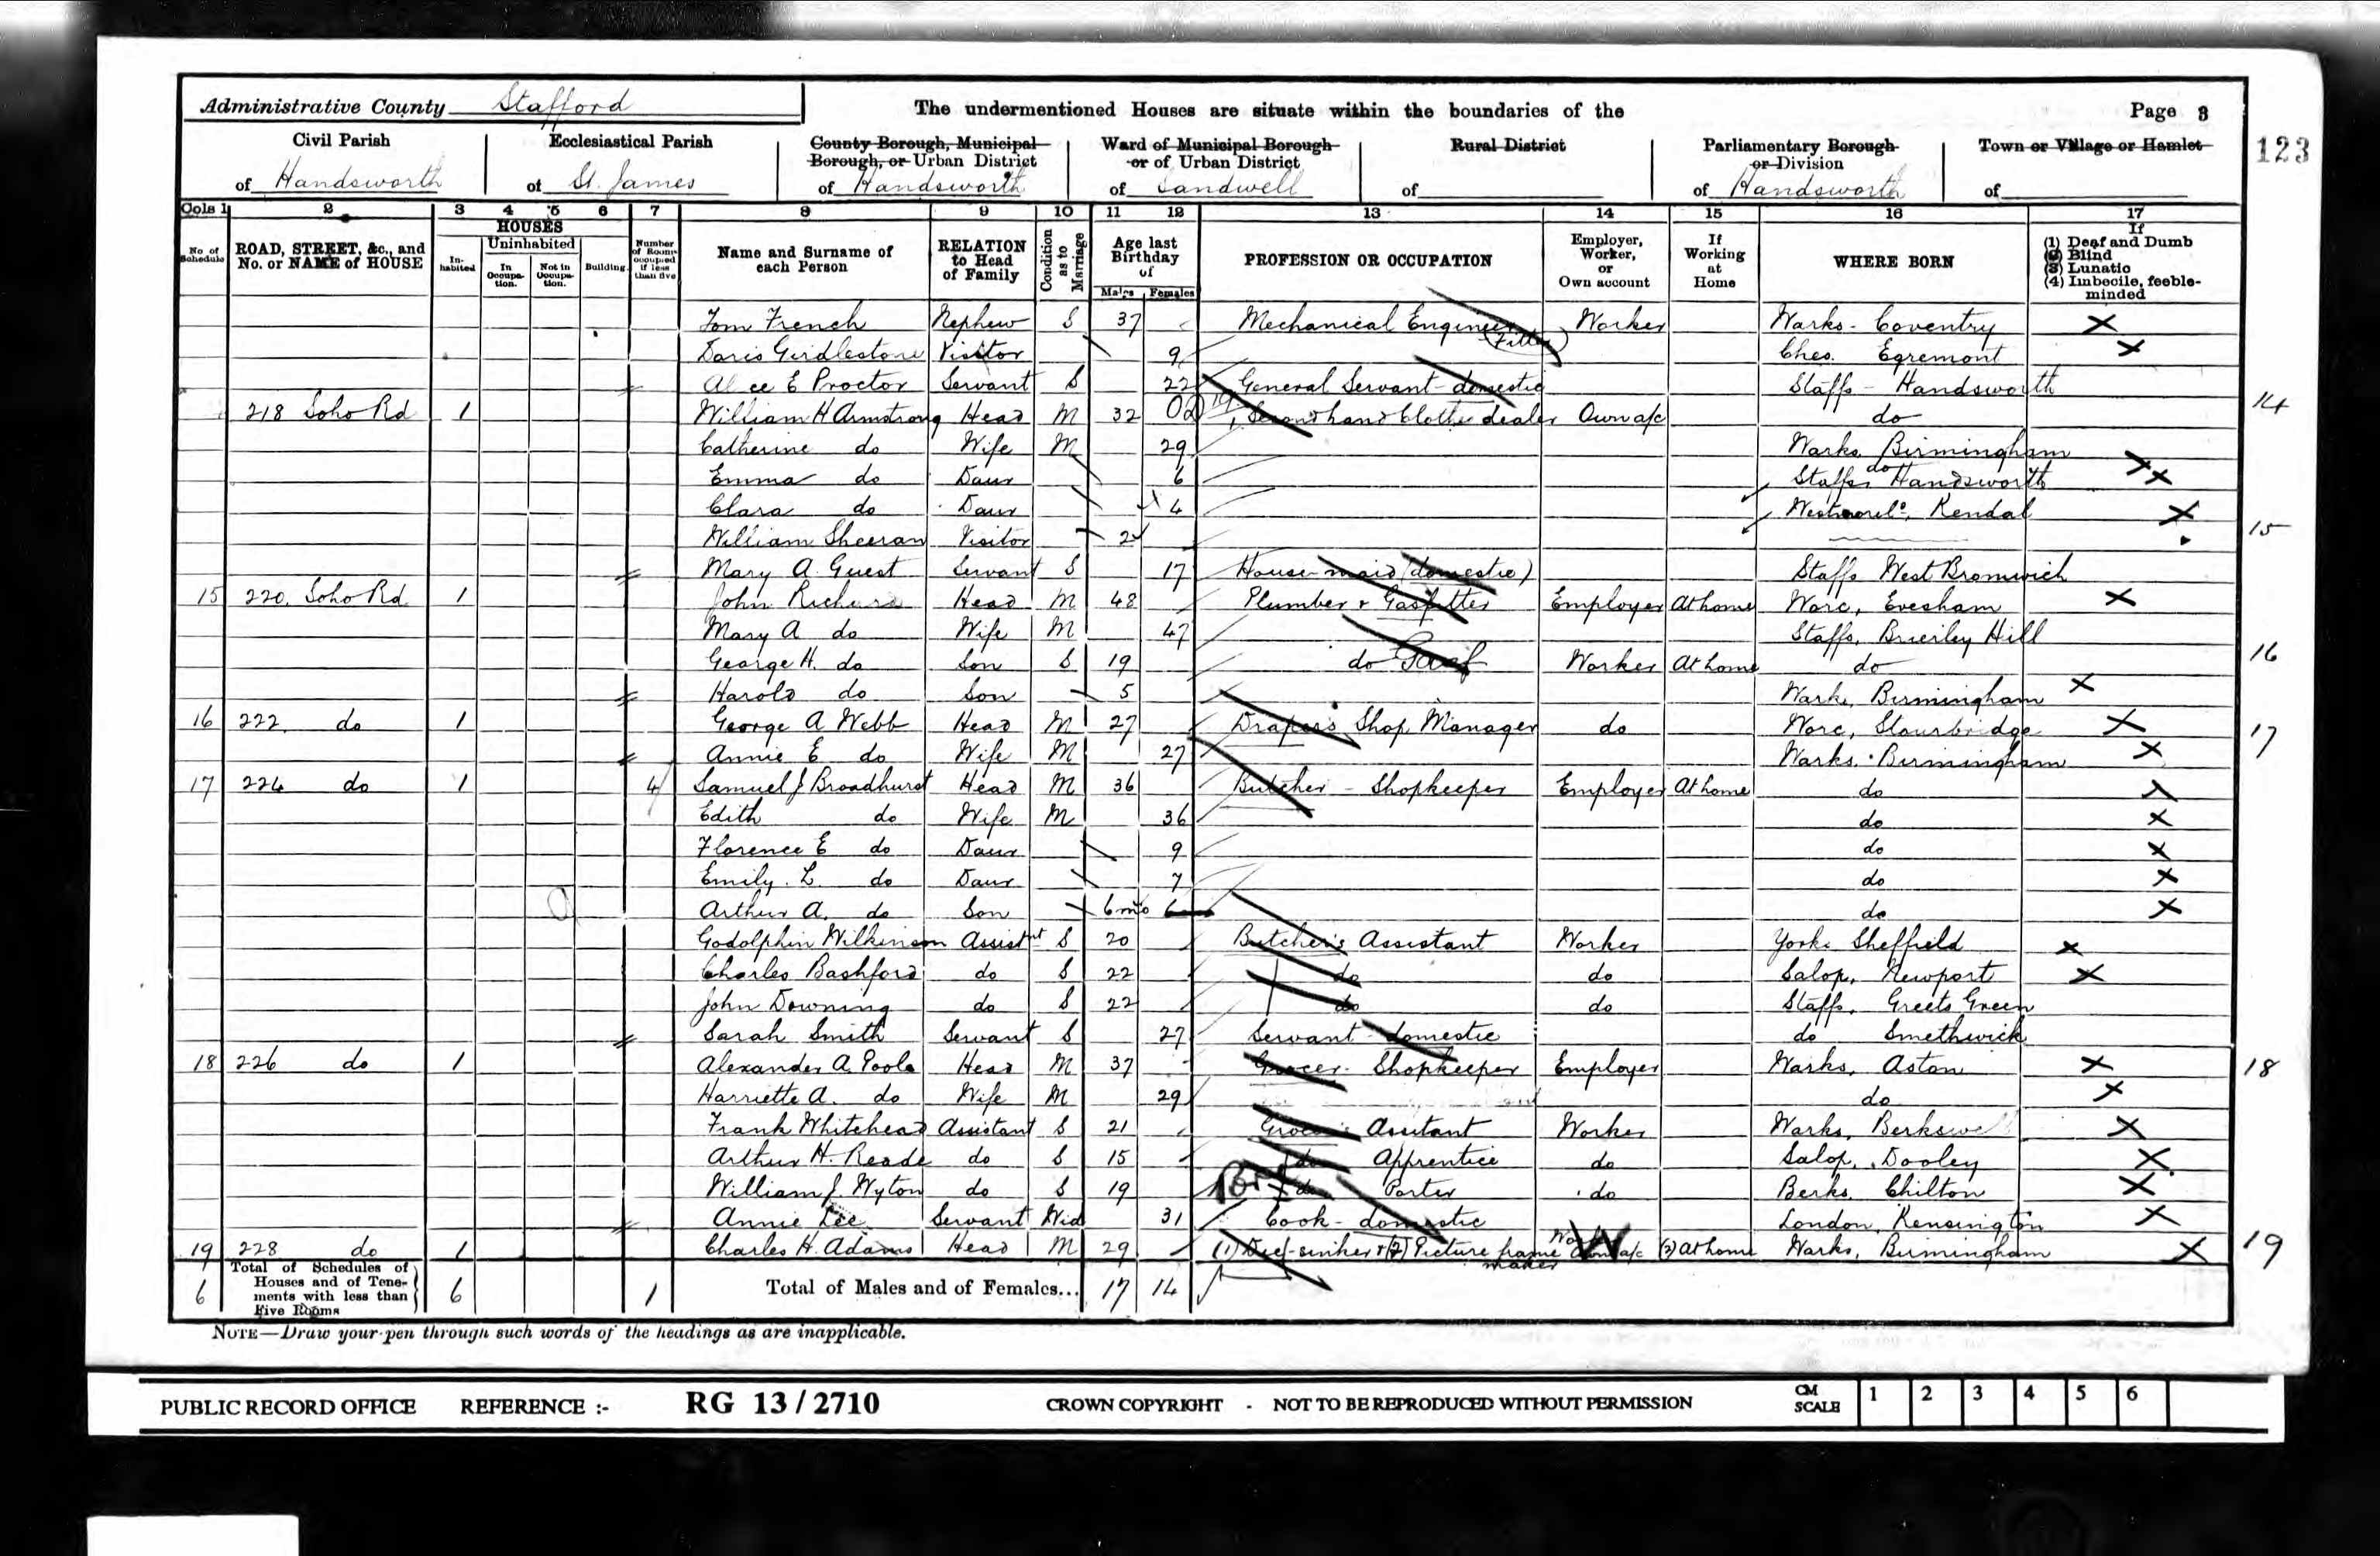 Administrative County Stafford
The undermentioned Houses are situate within the boundaries of the
Page 3
123
Civil Parish of Handsworth
Ecclesiastical Parish of St. James
County Borough, Municipal Borough, or Urban District of Handsworth
Ward of Municipal Borough or of Urban District of Sandwell
Rural District of
Parliamentary Borough or Division of Handsworth
Town or Village or Hamlet of
Cols 1 2 3 4 5 6 7 8 9 10 11 12 13 14 15 16 17
No. of Schedule
ROAD, STREET, &c., and No. or NAME of HOUSE
HOUSES
In-habited
Uninhabited
In Occupa-tion.
Not in Occupa-tion.
Building.
Number of Rooms occupied if less than five
Name and Surname of each Person
RELATION to Head of Family
Condition as to Marriage
Age last Birthday of
Males Females
PROFESSION OR OCCUPATION
Employer, Worker, or Own account
If Working at Home
WHERE BORN
If
(1) Deaf and Dumb
(2) Blind
(3) Lunatic
(4) Imbecile, feeble-minded
Tom French Nephew S 37 Mechanical Engineer (Fitter) Worker Warks - Coventry
Doris Girdlestone Visitor 9 Ches. Egremont
Alice E Proctor Servant S 22 General Servant - domestic Staffs - Handsworth
218 Soho Rd 1 William H Armstrong Head M 32 Secondhand Clothes dealer Own a/c do 14
Catherine do Wife M 29 Warks. Birmingham
Emma do Daur 6 Staffs, Handsworth
Clara do Daur 4 do
William Sheeran Visitor 2 Westmoreld, Kendal 15
Mary A. Guest Servant S 17 House-maid (domestic) Staffs West Bromwich
15 220. Soho Rd 1 John Head M 48 Plumber & Gasfitter Employer At home Worc, Evesham
Mary A do Wife M 47 Staffs, Brierley Hill
George H. do Son S 19 do Worker At home do 16
Harold do Son 5 Warks, Birmingham
16 222 do 1 George A Webb Head M 27 Draper's Shop Manager do Worc, Stourbridge 17
Annie E do Wife M 27 Warks. Birmingham
17 224 do 1 4 Samuel J Broadhurst Head M 36 Butcher - Shopkeeper Employer At home do
Edith do Wife M 36 do
Florence E do Daur 9 do
Emily. L. do Daur 7 do
Arthur A. do Son 6 mo do
Godolphin Wilkinson Assistnt S 20 Butcher's Assistant Worker Yorks Sheffield
Charles Bashford do S 22 do do Salop, Newport
John Downing do S 22 do do Staffs, Greets Green
Sarah Smith Servant S 27 Servant - domestic do Smethwick
18 226 do 1 Alexander A. Poole Head M 37 Grocer - Shopkeeper Employer Warks, Aston 18
Harriette A. do Wife M 29 do
Frank Whitehead Assistant S 21 Grocer's Assitant Worker Warks, Berkswell
Arthur H. Reade do S 15 do Apprentice do Salop, Dooley
William J. Wyton do S 19 do Porter do Berks. Chilton
Annie Lee Servant Wid 31 Cook - domestic London, Kensington
19 228 do 1 Charles H. Adams Head M 29 (1) Die-sinker & (2) Picture frame maker Own a/c (2) At home Warks, Birmingham 19
6 Total of Schedules of Houses and of Tene-ments with less than Five Rooms 6 1 Total of Males and of Females... 17 14
NOTE—Draw your pen through such words of the headings as are inapplicable.
PUBLIC RECORD OFFICE REFERENCE :- RG 13 / 2710 CROWN COPYRIGHT - NOT TO BE REPRODUCED WITHOUT PERMISSION CM SCALE 1 2 3 4 5 6